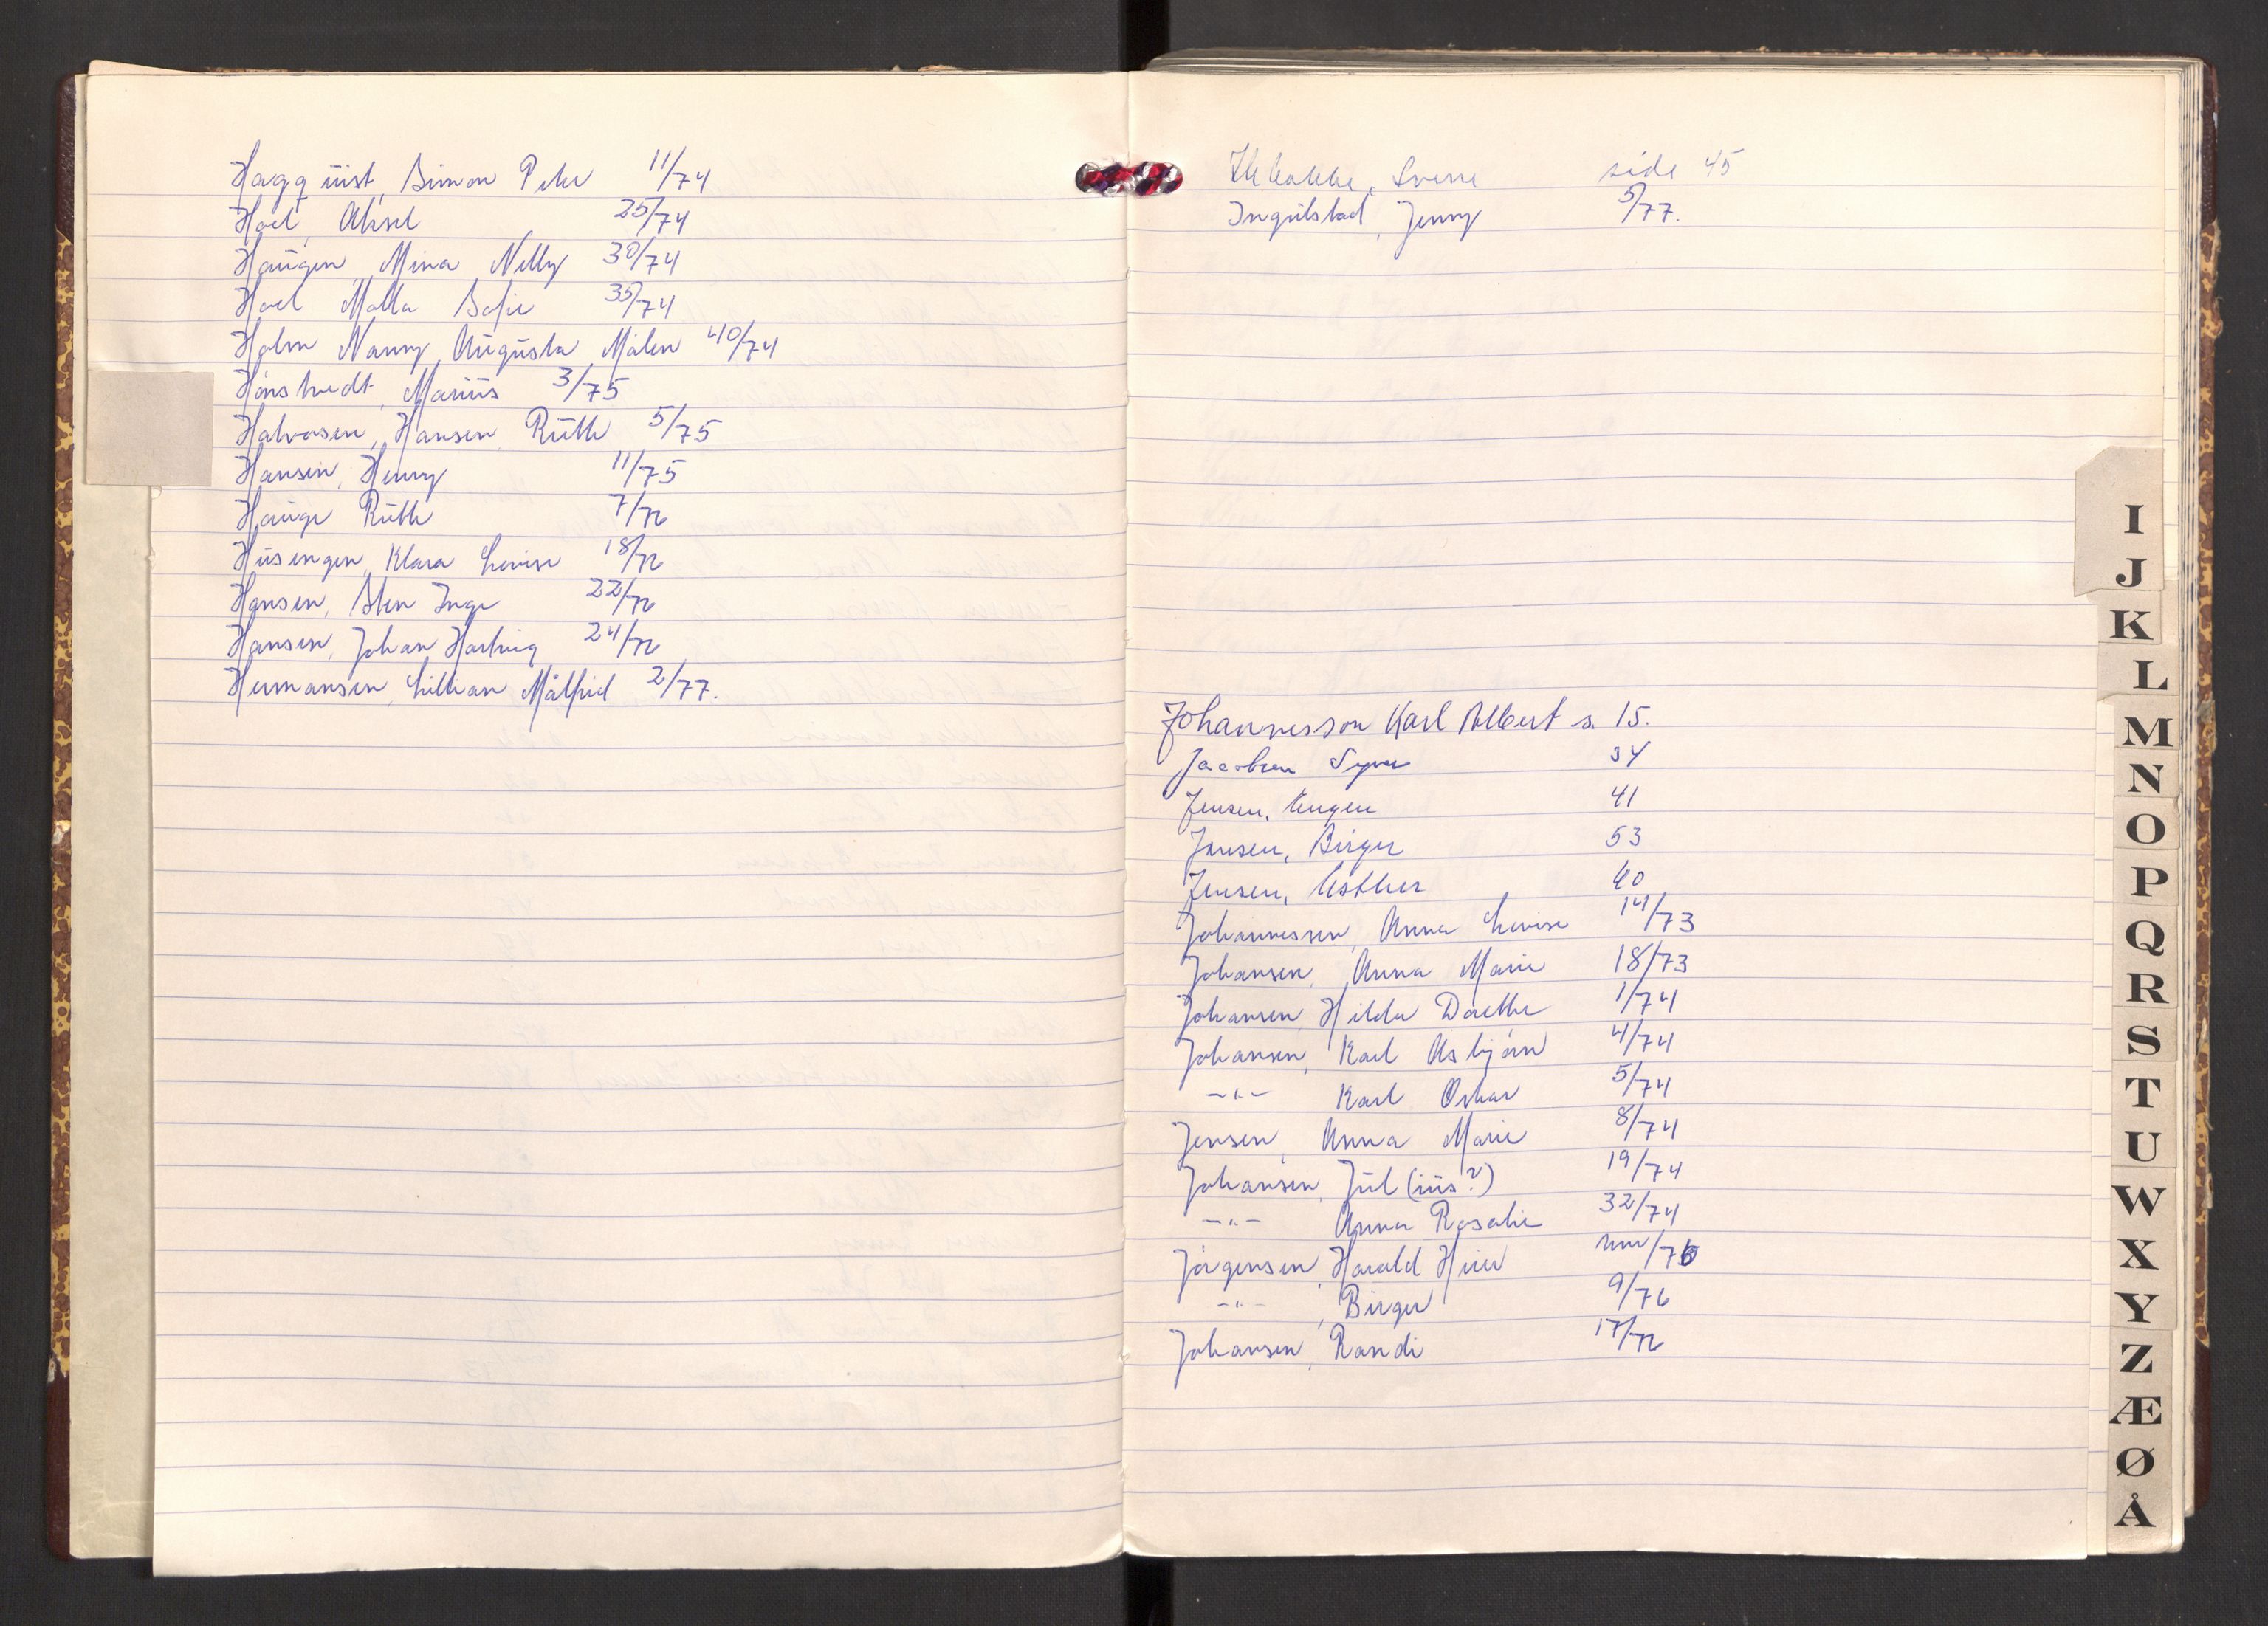 Hagquist, Simon Peter 11/74
Hoel, Aksel 25/74
Haugen, Mina Nelly 30/74
Hoel Malla Sofie 35/74
Holm Nanny Augusta Malen 40/74
Hønstvedt, Marius 3/75
Halvorsen, Hansen Ruth 5/75
Hansen, Henny 11/75
Hauge Ruth 7/76
Husengen, Klara Lovise 18/76
Hansen, Sten Inge 22/76
Hansen, Johan Hartvig 24/76
Hermansen, Lillian Målfrid 2/77.
Sverre side 45
Ingulstad, Jenny 5/77.
Johannesson Karl Albert s. 15.
Jacobsen Syver 34
Jensen, Eugen 41
Jansen, Birger 53
Jensen, Esther 60
Johannessen, Anna Lovise 14/73
Johansen, Anna Marie 18/73
Johansen, Hilda Dorthe 1/74
Johansen, Karl Asbjørn 4/74
-"- Karl Oskar 5/74
Jensen, Anna Marie 8/74
Johansen, Jul (ius?) 19/74
-"- Anna Rosalie 32/74
Jørgensen, Harald Hier /76
-"- , Birger 9/76
Johansen, Randi 17/76
I
J
K
L
M
N
O
P
Q
R
S
T
U
W
X
Y
Z
Æ
Ø
Å